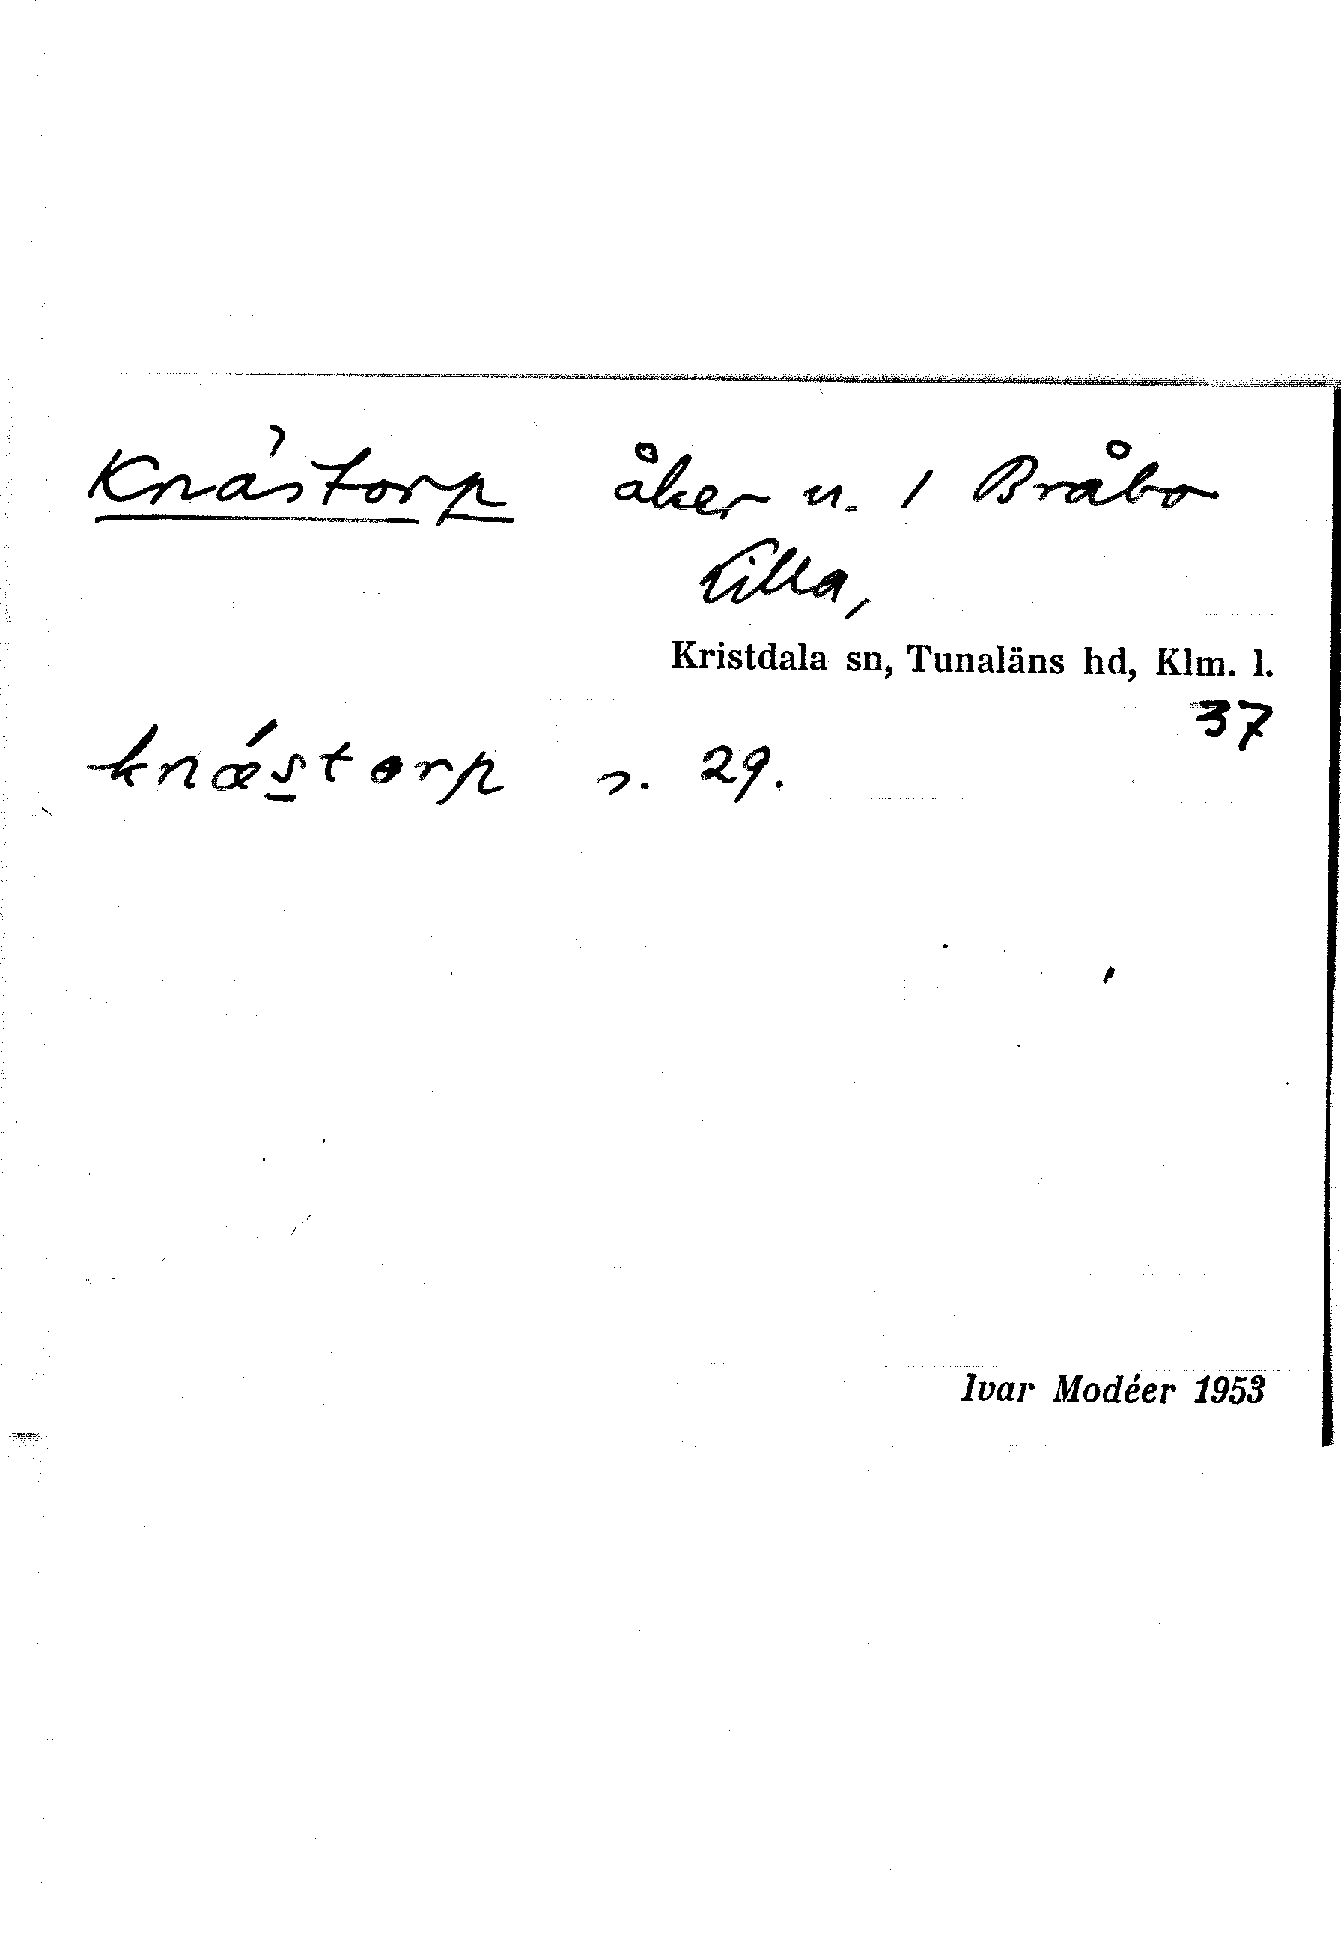 Knästorp åker n. 1 Bråbo
Lilla,
Kristdala sn, Tunaläns hd, Klm. l.
37
knǽstorp s. 29.
Ivar Modéer 1953